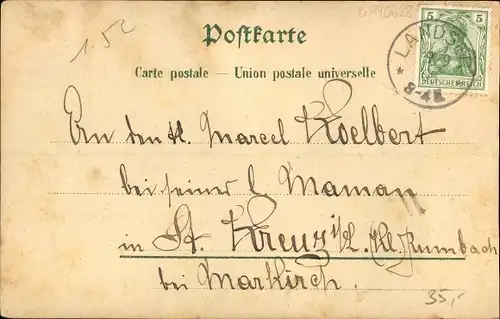 1.52
Postkarte
Carte postale — Union postale universelle
5 5
DEUTSCHES REICH
LANDS
8-9
An den kl. Marcel Koelbert
bei seiner l. Maman
in St. Kreuz i/L. (Kl. Rumbach
bei Markirch.
35,-